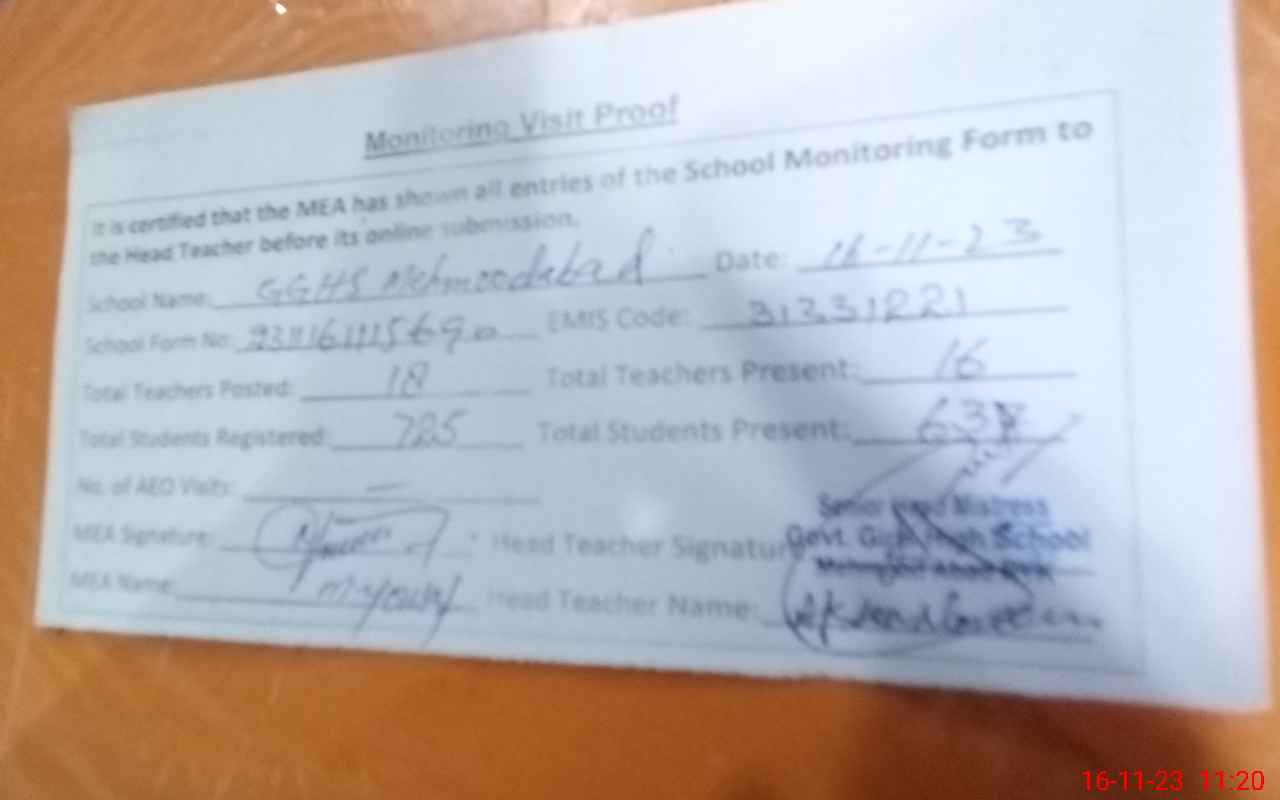 Monitoring Visit Proof
It is certified that the MEA has shown all entries of the School Monitoring Form to
the Head Teacher before its online submission.
School Name: GGHS Mehmoodabad Date: 16-11-23
School Form No: EMIS Code: 31331221
Total Teachers Posted: 18 Total Teachers Present: 16
Total Students Registered: 725 Total Students Present:
No. of AEO Visits: —
MEA Signature: Head Teacher Signature
Senior Head Mistress
Govt. Girls High School
MEA Name: Head Teacher Name:
16-11-23 11:20